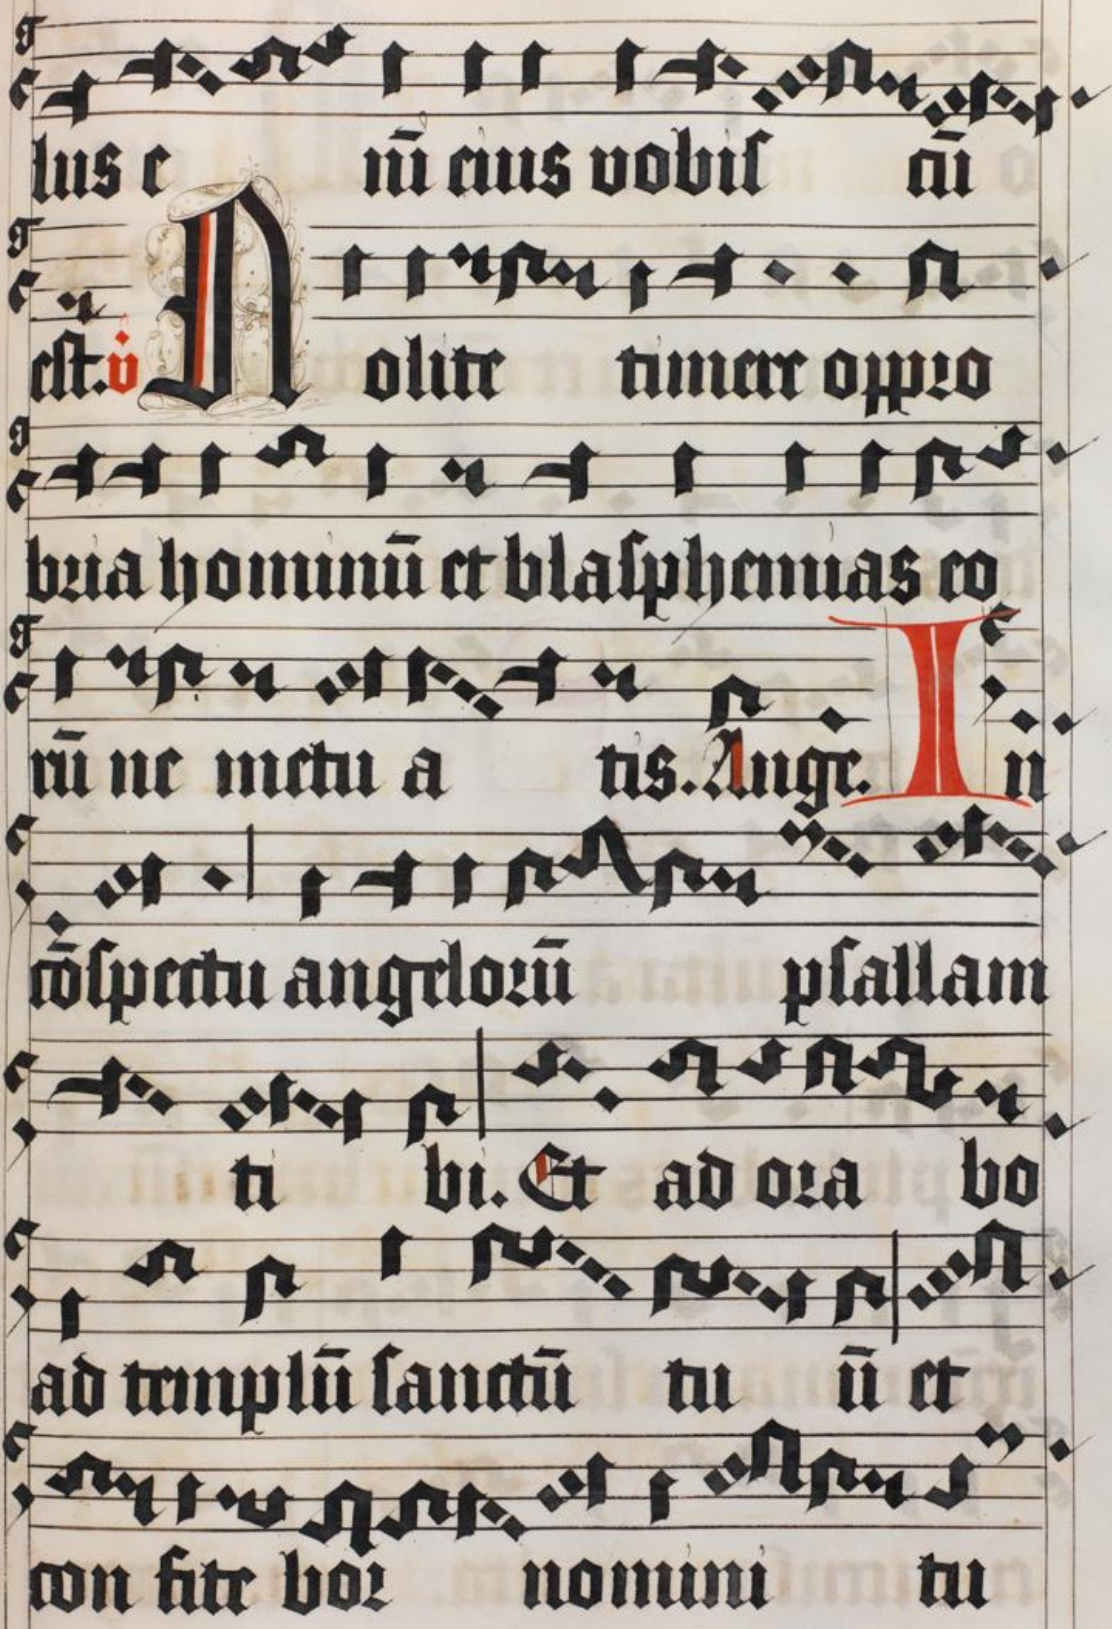 lus e nī eius vobiſ cū
eſt. v̇ Nolite timere oppro
bria hominū et blaſphemias eo
rū ne metu a tis. Ange. In
cōſpectu angelorū pſallam
ti bi. Et ad ora bo
ad templū ſanctū tu ū et
con fite bor nomini tu